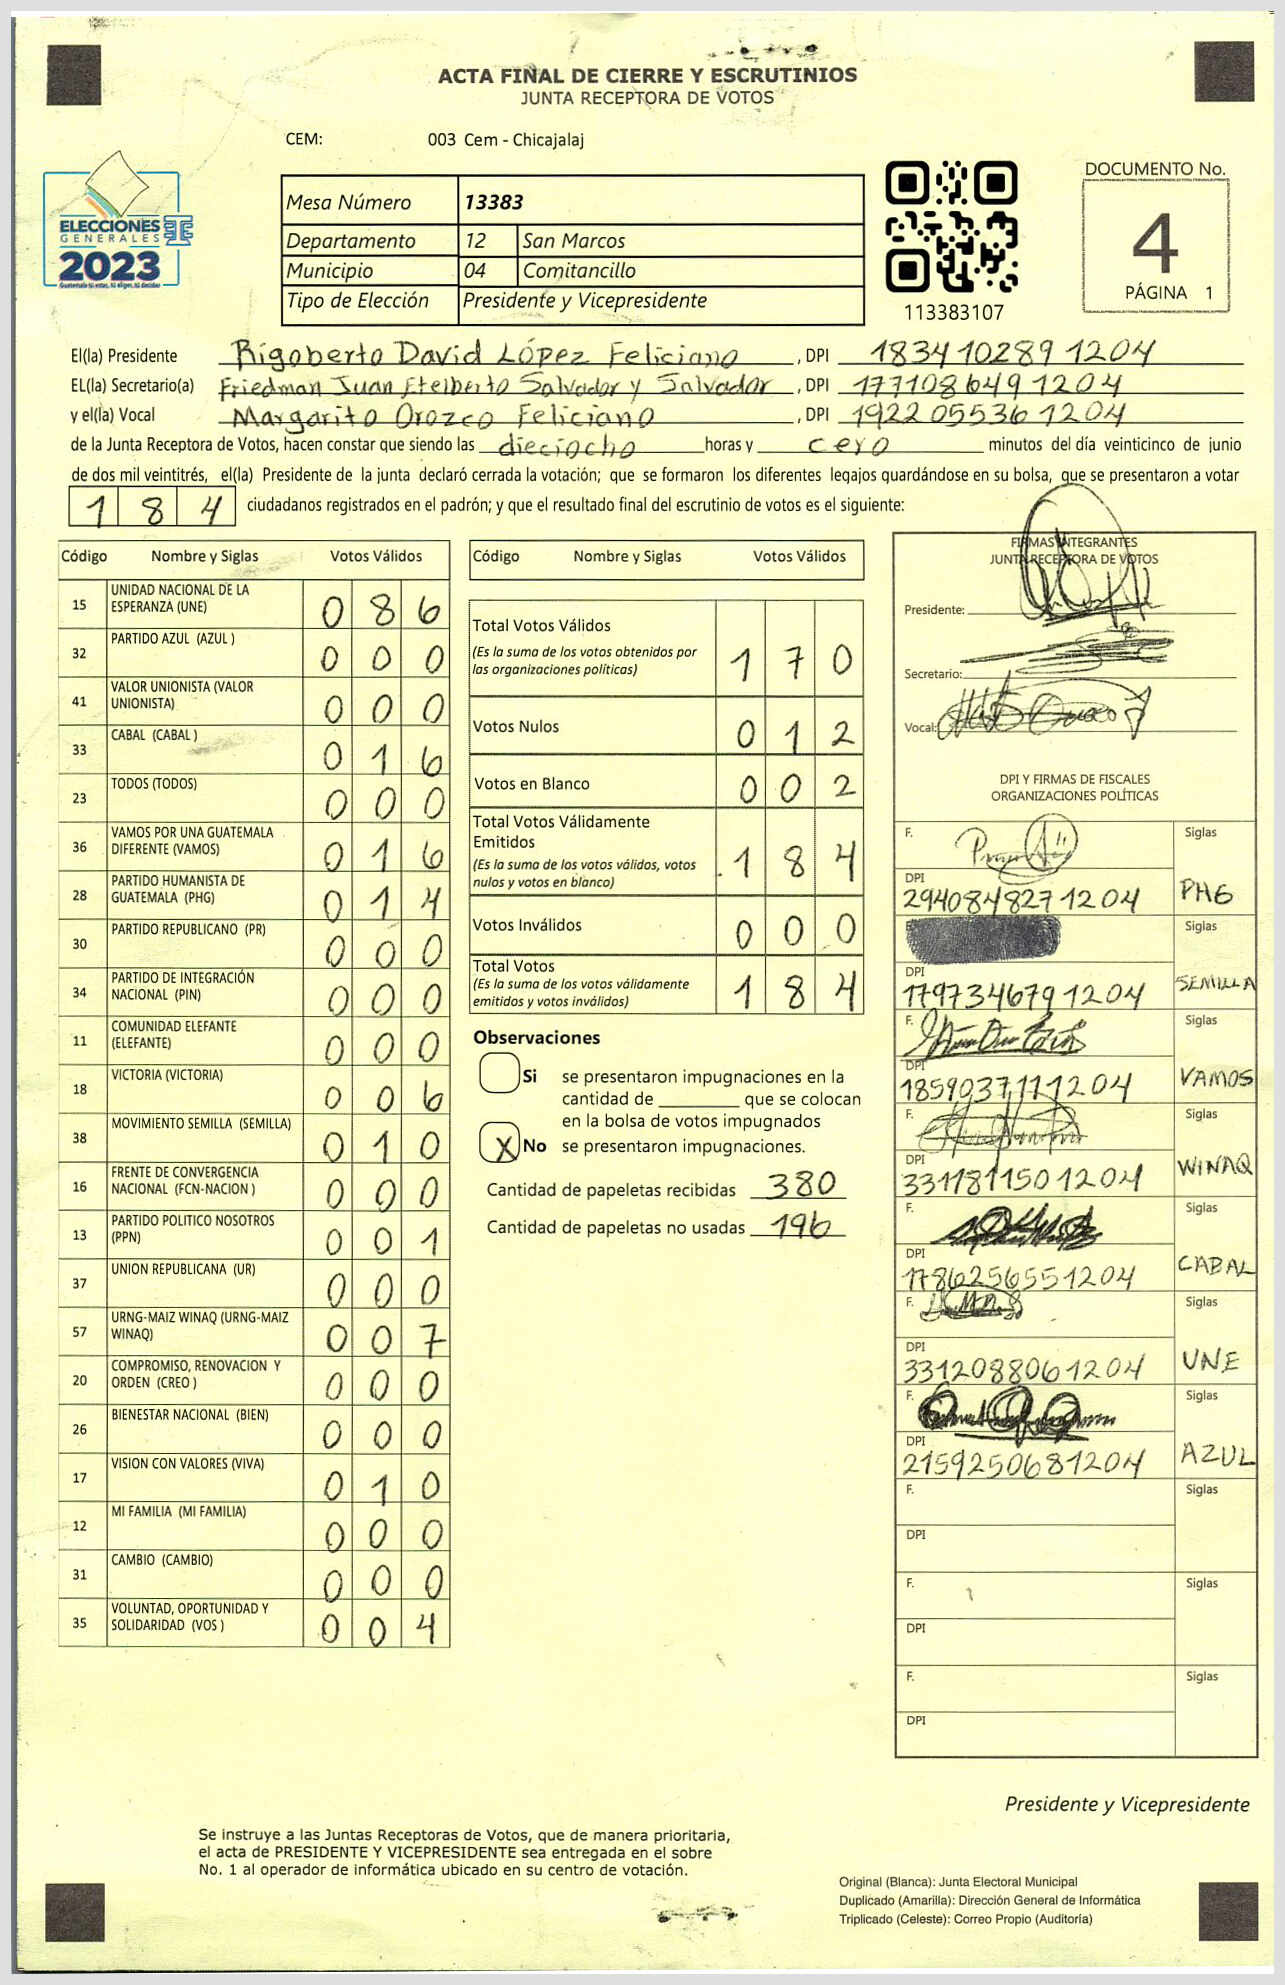 ACTA FINAL DE CIERRE Y ESCRUTINIOS
JUNTA RECEPTORA DE VOTOS
CEM: 003 Cem - Chicajalaj
ELECCIONES
GENERALES
2023
Mesa Número 13383
Departamento 12 San Marcos
Municipio 04 Comitancillo
Tipo de Elección Presidente y Vicepresidente
113383107
DOCUMENTO No.
4
PÁGINA 1
El(la) Presidente Rigoberto David López Feliciano , DPI 1834102891204
EL(la) Secretario(a) Friedman Juan Etelberto Salvador y Salvador , DPI 1771086491204
y el(la) Vocal Margarito Orozco Feliciano , DPI 1922055361204
de la Junta Receptora de Votos, hacen constar que siendo las dieciocho horas y cero minutos del día veinticinco de junio
de dos mil veintitrés, el(la) Presidente de la junta declaró cerrada la votación; que se formaron los diferentes legajos guardándose en su bolsa, que se presentaron a votar
184 ciudadanos registrados en el padrón; y que el resultado final del escrutinio de votos es el siguiente:
Código Nombre y Siglas Votos Válidos
15 UNIDAD NACIONAL DE LA ESPERANZA (UNE) 086
32 PARTIDO AZUL (AZUL ) 000
41 VALOR UNIONISTA (VALOR UNIONISTA) 000
33 CABAL (CABAL ) 016
23 TODOS (TODOS) 000
36 VAMOS POR UNA GUATEMALA DIFERENTE (VAMOS) 016
28 PARTIDO HUMANISTA DE GUATEMALA (PHG) 014
30 PARTIDO REPUBLICANO (PR) 000
34 PARTIDO DE INTEGRACIÓN NACIONAL (PIN) 000
11 COMUNIDAD ELEFANTE (ELEFANTE) 000
18 VICTORIA (VICTORIA) 006
38 MOVIMIENTO SEMILLA (SEMILLA) 010
16 FRENTE DE CONVERGENCIA NACIONAL (FCN-NACION ) 000
13 PARTIDO POLITICO NOSOTROS (PPN) 001
37 UNION REPUBLICANA (UR) 000
57 URNG-MAIZ WINAQ (URNG-MAIZ WINAQ) 007
20 COMPROMISO, RENOVACION Y ORDEN (CREO ) 000
26 BIENESTAR NACIONAL (BIEN) 000
17 VISION CON VALORES (VIVA) 010
12 MI FAMILIA (MI FAMILIA) 000
31 CAMBIO (CAMBIO) 000
35 VOLUNTAD, OPORTUNIDAD Y SOLIDARIDAD (VOS ) 004
Código Nombre y Siglas Votos Válidos
Total Votos Válidos 170
(Es la suma de los votos obtenidos por
las organizaciones políticas)
Votos Nulos 012
Votos en Blanco 002
Total Votos Válidamente
Emitidos 184
(Es la suma de los votos válidos, votos
nulos y votos en blanco)
Votos Inválidos 000
Total Votos 184
(Es la suma de los votos válidamente
emitidos y votos inválidos)
Observaciones
Si se presentaron impugnaciones en la
cantidad de ________ que se colocan
en la bolsa de votos impugnados
X No se presentaron impugnaciones.
Cantidad de papeletas recibidas 380
Cantidad de papeletas no usadas 196
FIRMAS INTEGRANTES
JUNTA RECEPTORA DE VOTOS
Presidente:
Secretario:
Vocal:
DPI Y FIRMAS DE FISCALES
ORGANIZACIONES POLÍTICAS
F. Siglas
DPI 2940848271204 PHG
Siglas
DPI 1797346791204 SEMILLA
F. Siglas
DPI 1859037111204 VAMOS
F. Siglas
DPI 3311811501204 WINAQ
F. Siglas
DPI 1786256551204 CABAL
F. Siglas
DPI 3312088061204 UNE
F. Siglas
DPI 2159250681204 AZUL
F. Siglas
DPI
F. Siglas
DPI
F. Siglas
DPI
Presidente y Vicepresidente
Se instruye a las Juntas Receptoras de Votos, que de manera prioritaria,
el acta de PRESIDENTE Y VICEPRESIDENTE sea entregada en el sobre
No. 1 al operador de informática ubicado en su centro de votación.
Original (Blanca): Junta Electoral Municipal
Duplicado (Amarilla): Dirección General de Informática
Triplicado (Celeste): Correo Propio (Auditoría)